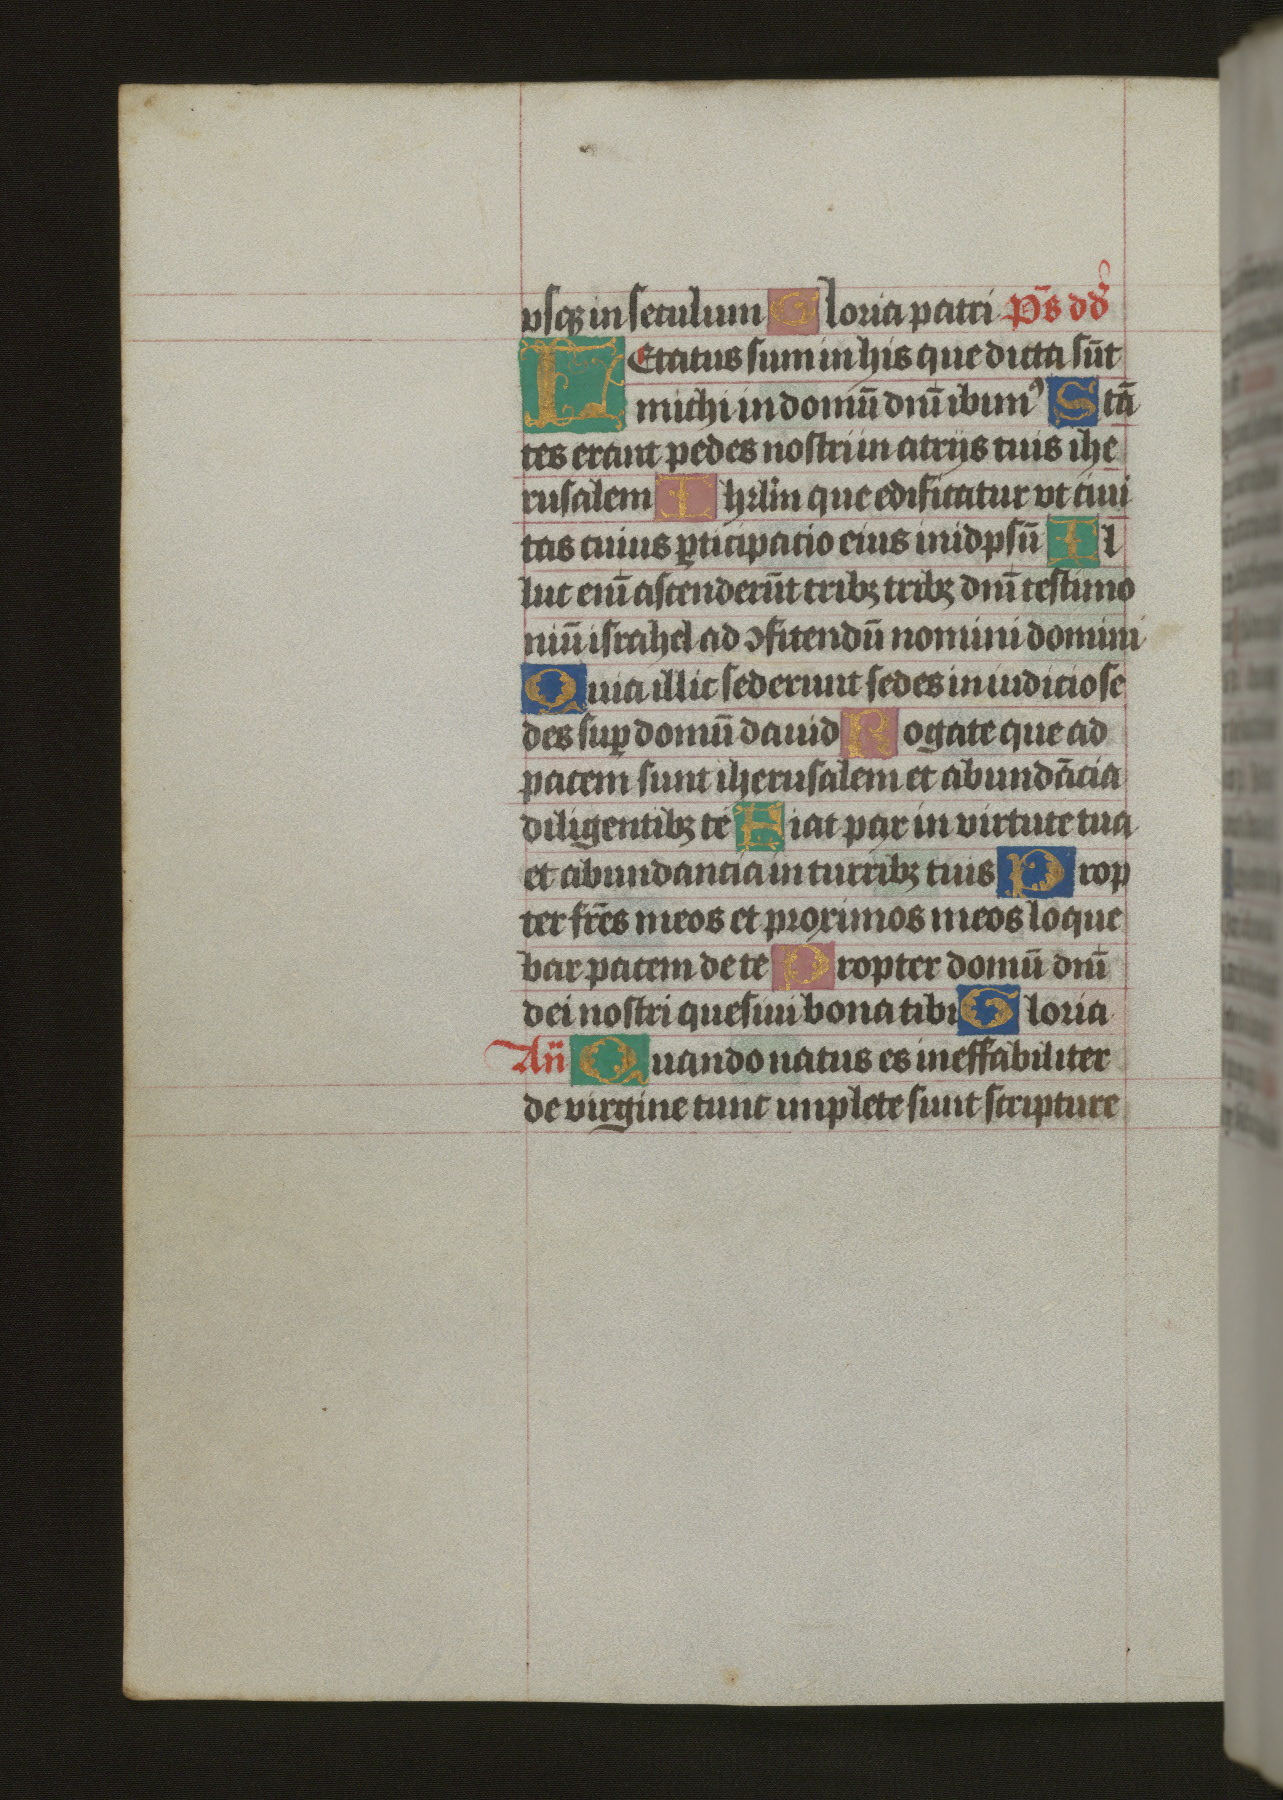 vsq3 in seculum Gloria patri p̄s dd̄
LEtatus sum in his que dicta sūt
michi in domū dnī ibimꝰ Stā
tes erant pedes nostri in atrijs tuis ihe
rusalem Ihrlm̄ que edificatur vt ciui
tas cuius ꝑticipacio eius in idpsū Il
luc enī ascenderūt tribꝫ tribꝫ dnī testimo
niū israhel ad ↄfitendū nomini domini
Quia illic sederunt sedes in iudicio se
des suꝑ domū dauid Rogate que ad
pacem sunt iherusalem et abundācia
diligentibꝫ te Fiat pax in virtute tua
et abundancia in turribꝫ tuis Prop
ter fr̄es meos et proximos meos loque
bar pacem de te Propter domū dnī
dei nostri quesiui bona tibi Gloria
An̄ Quando natus es ineffabiliter
de virgine tunc implete sunt scripture